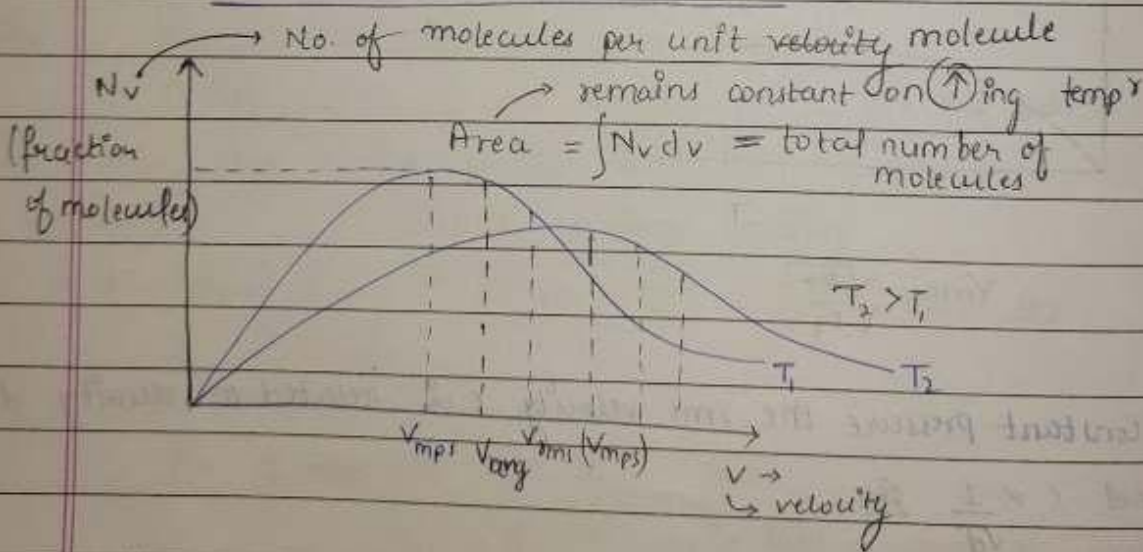 No. of molecules per unit velocity molecule
Nv
(fraction
of molecules)
remains constant on ↑ing tempr
Area = ∫Nv dv = total number of
molecules
T2 > T1
T1
T2
Vmps Vavg Vrms (Vmps)
V →
↳ velocity